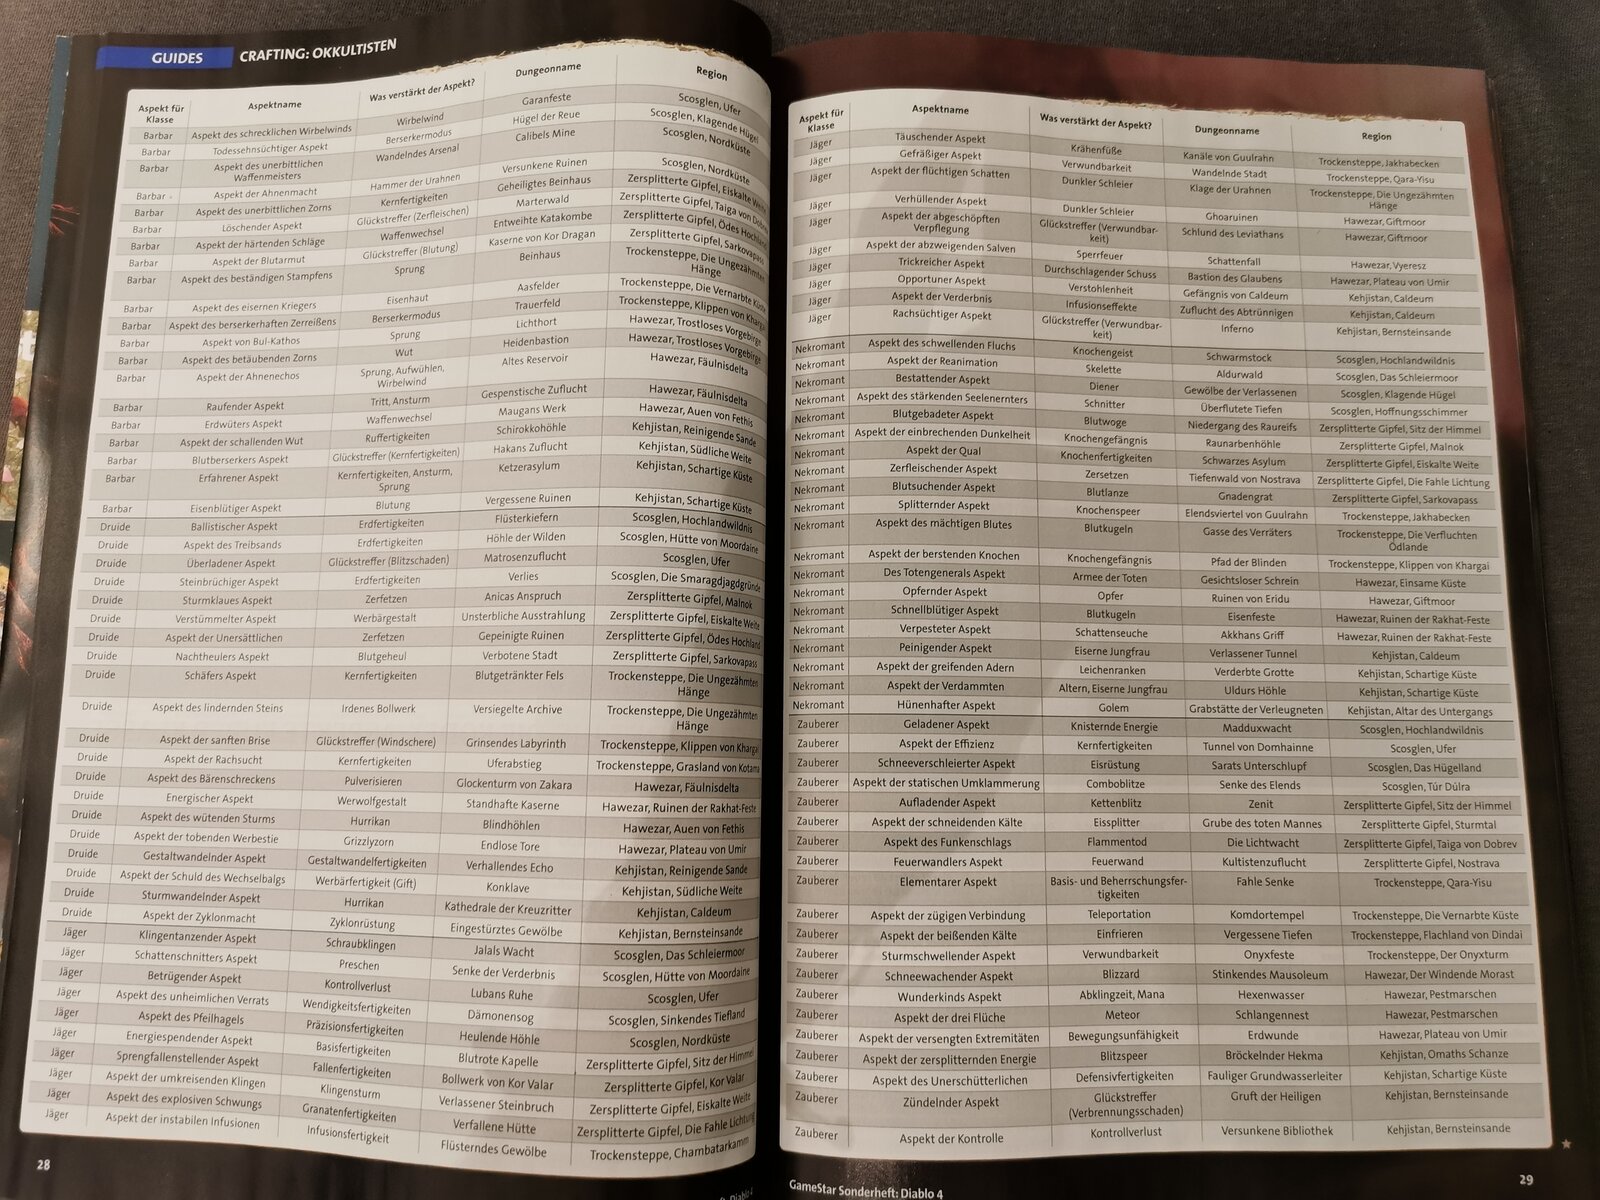 GUIDES CRAFTING: OKKULTISTEN
Aspekt für Klasse Aspektname Was verstärkt der Aspekt? Dungeonname Region
Barbar Aspekt des schrecklichen Wirbelwinds Wirbelwind Garanfeste Scosglen, Ufer
Barbar Todessehnsüchtiger Aspekt Berserkermodus Hügel der Reue Scosglen, Klagende Hügel
Barbar Aspekt des unerbittlichen Waffenmeisters Wandelndes Arsenal Calibels Mine Scosglen, Nordküste
Barbar Aspekt der Ahnenmacht Hammer der Urahnen Versunkene Ruinen Scosglen, Nordküste
Barbar Aspekt des unerbittlichen Zorns Kernfertigkeiten Geheiligtes Beinhaus Zersplitterte Gipfel, Eiskalte
Barbar Löschender Aspekt Glückstreffer (Zerfleischen) Marterwald Zersplitterte Gipfel, Taiga von
Barbar Aspekt der härtenden Schläge Waffenwechsel Entweihte Katakombe Zersplitterte Gipfel, Ödes
Barbar Aspekt der Blutarmut Glückstreffer (Blutung) Kaserne von Kor Dragan Zersplitterte Gipfel, Sarkovapass
Barbar Aspekt des beständigen Stampfens Sprung Beinhaus Trockensteppe, Die Ungezähmten Hänge
Barbar Aspekt des eisernen Kriegers Eisenhaut Aasfelder Trockensteppe, Die Vernarbte
Barbar Aspekt des berserkerhaften Zerreißens Berserkermodus Trauerfeld Trockensteppe, Klippen von
Barbar Aspekt von Bul-Kathos Sprung Lichthort Hawezar, Trostloses Vorgebirge
Barbar Aspekt des betäubenden Zorns Wut Heidenbastion Hawezar, Trostloses Vorgebirge
Barbar Aspekt der Ahnenechos Sprung, Aufwühlen, Wirbelwind Altes Reservoir Hawezar, Fäulnisdelta
Barbar Raufender Aspekt Tritt, Ansturm Gespenstische Zuflucht Hawezar, Fäulnisdelta
Barbar Erdwüters Aspekt Waffenwechsel Maugans Werk Hawezar, Auen von Fethis
Barbar Aspekt der schallenden Wut Ruffertigkeiten Schirokkohöhle Kehjistan, Reinigende Sande
Barbar Blutberserkers Aspekt Glückstreffer (Kernfertigkeiten) Hakans Zuflucht Kehjistan, Südliche Weite
Barbar Erfahrener Aspekt Kernfertigkeiten, Ansturm, Sprung Ketzerasylum Kehjistan, Schartige Küste
Barbar Eisenblütiger Aspekt Blutung Vergessene Ruinen Kehjistan, Schartige Küste
Druide Ballistischer Aspekt Erdfertigkeiten Flüsterkiefern Scosglen, Hochlandwildnis
Druide Aspekt des Treibsands Erdfertigkeiten Höhle der Wilden Scosglen, Hütte von Moordaine
Druide Überladener Aspekt Glückstreffer (Blitzschaden) Matrosenzuflucht Scosglen, Ufer
Druide Steinbrüchiger Aspekt Erdfertigkeiten Verlies Scosglen, Die Smaragdjagdgründe
Druide Sturmklaues Aspekt Zerfetzen Anicas Anspruch Zersplitterte Gipfel, Malnok
Druide Verstümmelter Aspekt Werbärgestalt Unsterbliche Ausstrahlung Zersplitterte Gipfel, Eiskalte Weite
Druide Aspekt der Unersättlichen Zerfetzen Gepeinigte Ruinen Zersplitterte Gipfel, Ödes Hochland
Druide Nachtheulers Aspekt Blutgeheul Verbotene Stadt Zersplitterte Gipfel, Sarkovapass
Druide Schäfers Aspekt Kernfertigkeiten Blutgetränkter Fels Trockensteppe, Die Ungezähmten Hänge
Druide Aspekt des lindernden Steins Irdenes Bollwerk Versiegelte Archive Trockensteppe, Die Ungezähmten Hänge
Druide Aspekt der sanften Brise Glückstreffer (Windschere) Grinsendes Labyrinth Trockensteppe, Klippen von Khargai
Druide Aspekt der Rachsucht Kernfertigkeiten Uferabstieg Trockensteppe, Grasland von Kotama
Druide Aspekt des Bärenschreckens Pulverisieren Glockenturm von Zakara Hawezar, Fäulnisdelta
Druide Energischer Aspekt Werwolfgestalt Standhafte Kaserne Hawezar, Ruinen der Rakhat-Feste
Druide Aspekt des wütenden Sturms Hurrikan Blindhöhlen Hawezar, Auen von Fethis
Druide Aspekt der tobenden Werbestie Grizzlyzorn Endlose Tore Hawezar, Plateau von Umir
Druide Gestaltwandelnder Aspekt Gestaltwandelfertigkeiten Verhallendes Echo Kehjistan, Reinigende Sande
Druide Aspekt der Schuld des Wechselbalgs Werbärfertigkeit (Gift) Konklave Kehjistan, Südliche Weite
Druide Sturmwandelnder Aspekt Hurrikan Kathedrale der Kreuzritter Kehjistan, Caldeum
Druide Aspekt der Zyklonmacht Zyklonrüstung Eingestürztes Gewölbe Kehjistan, Bernsteinsande
Jäger Klingentanzender Aspekt Schraubklingen Jalals Wacht Scosglen, Das Schleiermoor
Jäger Schattenschnitters Aspekt Preschen Senke der Verderbnis Scosglen, Hütte von Moordaine
Jäger Betrügender Aspekt Kontrollverlust Lubans Ruhe Scosglen, Ufer
Jäger Aspekt des unheimlichen Verrats Wendigkeitsfertigkeiten Dämonensog Scosglen, Sinkendes Tiefland
Jäger Aspekt des Pfeilhagels Präzisionsfertigkeiten Heulende Höhle Scosglen, Nordküste
Jäger Energiespendender Aspekt Basisfertigkeiten Blutrote Kapelle Zersplitterte Gipfel, Sitz der Himmel
Jäger Sprengfallenstellender Aspekt Fallenfertigkeiten Bollwerk von Kor Valar Zersplitterte Gipfel, Kor Valar
Jäger Aspekt der umkreisenden Klingen Klingensturm Verlassener Steinbruch Zersplitterte Gipfel, Eiskalte Weite
Jäger Aspekt des explosiven Schwungs Granatenfertigkeiten Verfallene Hütte Zersplitterte Gipfel, Die Fahle Lichtung
Jäger Aspekt der instabilen Infusionen Infusionsfertigkeit Flüsterndes Gewölbe Trockensteppe, Chambatarkamm
28
Aspekt für Klasse Aspektname Was verstärkt der Aspekt? Dungeonname Region
Jäger Täuschender Aspekt Krähenfüße Kanäle von Guulrahn Trockensteppe, Jakhabecken
Jäger Gefräßiger Aspekt Verwundbarkeit Wandelnde Stadt Trockensteppe, Qara-Yisu
Jäger Aspekt der flüchtigen Schatten Dunkler Schleier Klage der Urahnen Trockensteppe, Die Ungezähmten Hänge
Jäger Verhüllender Aspekt Dunkler Schleier Ghoaruinen Hawezar, Giftmoor
Jäger Aspekt der abgeschöpften Verpflegung Glückstreffer (Verwundbarkeit) Schlund des Leviathans Hawezar, Giftmoor
Jäger Aspekt der abzweigenden Salven Sperrfeuer Schattenfall Hawezar, Vyeresz
Jäger Trickreicher Aspekt Durchschlagender Schuss Bastion des Glaubens Hawezar, Plateau von Umir
Jäger Opportuner Aspekt Verstohlenheit Gefängnis von Caldeum Kehjistan, Caldeum
Jäger Aspekt der Verderbnis Infusionseffekte Zuflucht des Abtrünnigen Kehjistan, Caldeum
Jäger Rachsüchtiger Aspekt Glückstreffer (Verwundbarkeit) Inferno Kehjistan, Bernsteinsande
Nekromant Aspekt des schwellenden Fluchs Knochengeist Schwarmstock Scosglen, Hochlandwildnis
Nekromant Aspekt der Reanimation Skelette Aldurwald Scosglen, Das Schleiermoor
Nekromant Bestattender Aspekt Diener Gewölbe der Verlassenen Scosglen, Klagende Hügel
Nekromant Aspekt des stärkenden Seelenernters Schnitter Überflutete Tiefen Scosglen, Hoffnungsschimmer
Nekromant Blutgebadeter Aspekt Blutwoge Niedergang des Raureifs Zersplitterte Gipfel, Sitz der Himmel
Nekromant Aspekt der einbrechenden Dunkelheit Knochengefängnis Raunarbenhöhle Zersplitterte Gipfel, Malnok
Nekromant Aspekt der Qual Knochenfertigkeiten Schwarzes Asylum Zersplitterte Gipfel, Eiskalte Weite
Nekromant Zerfleischender Aspekt Zersetzen Tiefenwald von Nostrava Zersplitterte Gipfel, Die Fahle Lichtung
Nekromant Blutsuchender Aspekt Blutlanze Gnadengrat Zersplitterte Gipfel, Sarkovapass
Nekromant Splitternder Aspekt Knochenspeer Elendsviertel von Guulrahn Trockensteppe, Jakhabecken
Nekromant Aspekt des mächtigen Blutes Blutkugeln Gasse des Verräters Trockensteppe, Die Verfluchten Ödlande
Nekromant Aspekt der berstenden Knochen Knochengefängnis Pfad der Blinden Trockensteppe, Klippen von Khargai
Nekromant Des Totengenerals Aspekt Armee der Toten Gesichtsloser Schrein Hawezar, Einsame Küste
Nekromant Opfernder Aspekt Opfer Ruinen von Eridu Hawezar, Giftmoor
Nekromant Schnellblütiger Aspekt Blutkugeln Eisenfeste Hawezar, Ruinen der Rakhat-Feste
Nekromant Verpesteter Aspekt Schattenseuche Akkhans Griff Hawezar, Ruinen der Rakhat-Feste
Nekromant Peinigender Aspekt Eiserne Jungfrau Verlassener Tunnel Kehjistan, Caldeum
Nekromant Aspekt der greifenden Adern Leichenranken Verderbte Grotte Kehjistan, Schartige Küste
Nekromant Aspekt der Verdammten Altern, Eiserne Jungfrau Uldurs Höhle Kehjistan, Schartige Küste
Nekromant Hünenhafter Aspekt Golem Grabstätte der Verleugneten Kehjistan, Altar des Untergangs
Zauberer Geladener Aspekt Knisternde Energie Madduxwacht Scosglen, Hochlandwildnis
Zauberer Aspekt der Effizienz Kernfertigkeiten Tunnel von Domhainne Scosglen, Ufer
Zauberer Schneeverschleierter Aspekt Eisrüstung Sarats Unterschlupf Scosglen, Das Hügelland
Zauberer Aspekt der statischen Umklammerung Comboblitze Senke des Elends Scosglen, Túr Dúlra
Zauberer Aufladender Aspekt Kettenblitz Zenit Zersplitterte Gipfel, Sitz der Himmel
Zauberer Aspekt der schneidenden Kälte Eissplitter Grube des toten Mannes Zersplitterte Gipfel, Sturmtal
Zauberer Aspekt des Funkenschlags Flammentod Die Lichtwacht Zersplitterte Gipfel, Taiga von Dobrev
Zauberer Feuerwandlers Aspekt Feuerwand Kultistenzuflucht Zersplitterte Gipfel, Nostrava
Zauberer Elementarer Aspekt Basis- und Beherrschungsfertigkeiten Fahle Senke Trockensteppe, Qara-Yisu
Zauberer Aspekt der zügigen Verbindung Teleportation Komdortempel Trockensteppe, Die Vernarbte Küste
Zauberer Aspekt der beißenden Kälte Einfrieren Vergessene Tiefen Trockensteppe, Flachland von Dindai
Zauberer Sturmschwellender Aspekt Verwundbarkeit Onyxfeste Trockensteppe, Der Onyxturm
Zauberer Schneewachender Aspekt Blizzard Stinkendes Mausoleum Hawezar, Der Windende Morast
Zauberer Wunderkinds Aspekt Abklingzeit, Mana Hexenwasser Hawezar, Pestmarschen
Zauberer Aspekt der drei Flüche Meteor Schlangennest Hawezar, Pestmarschen
Zauberer Aspekt der versengten Extremitäten Bewegungsunfähigkeit Erdwunde Hawezar, Plateau von Umir
Zauberer Aspekt der zersplitternden Energie Blitzspeer Bröckelnder Hekma Kehjistan, Omaths Schanze
Zauberer Aspekt des Unerschütterlichen Defensivfertigkeiten Fauliger Grundwasserleiter Kehjistan, Schartige Küste
Zauberer Zündelnder Aspekt Glückstreffer (Verbrennungsschaden) Gruft der Heiligen Kehjistan, Bernsteinsande
Zauberer Aspekt der Kontrolle Kontrollverlust Versunkene Bibliothek Kehjistan, Bernsteinsande
GameStar Sonderheft: Diablo 4
29